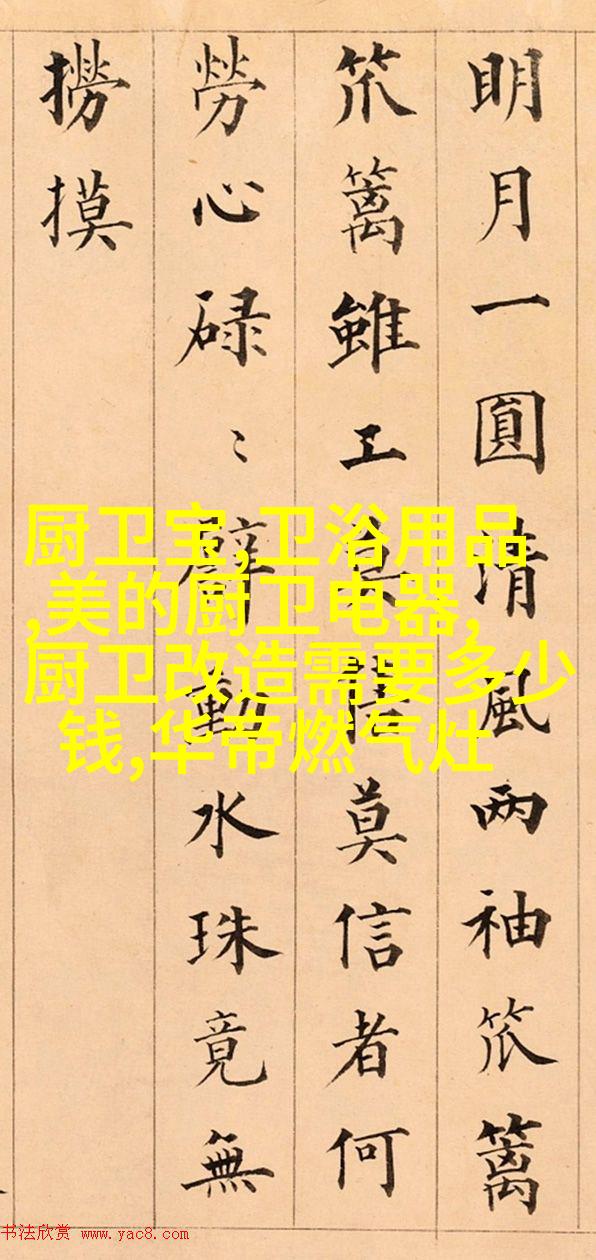 明月一圓清風两袖笊篱
笊篱雖工莫信者何
勞心碌〻動水珠竟無
撈摸
厨卫宝,卫浴用品
,美的厨卫电器,
厨卫改造需要多少
钱,华帝燃气灶
书法欣赏 www.yac8.com